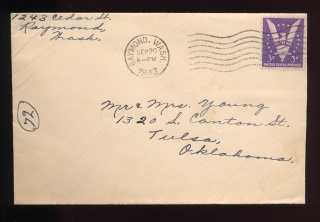 1243 Cedar St.
Raymond,
Wash.
RAYMOND, WASH.
SEP 20
6-PM
1943
3¢ 3¢
UNITED STATES POSTAGE
Mr & Mrs. Young
1320 S. Canton St.
Tulsa,
Oklahoma.